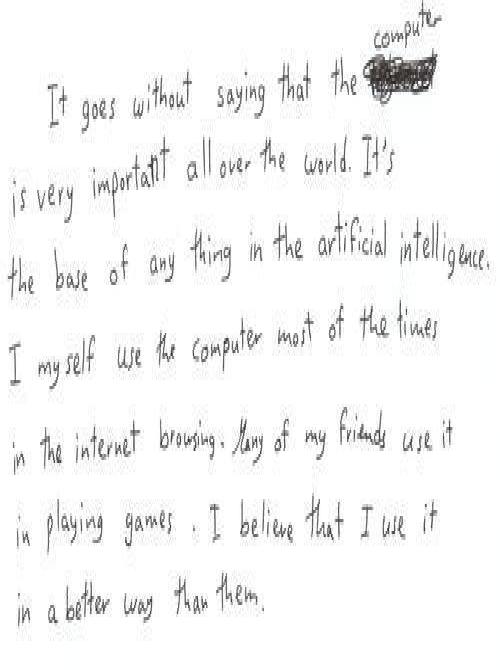 computer
It goes without saying that the
is very important all over the world. It's
the base of any thing in the artificial intelligence.
I my self use the computer most of the times
in the internet browsing. Many of my friends use it
in playing games. I believe that I use it
in a better way than them.